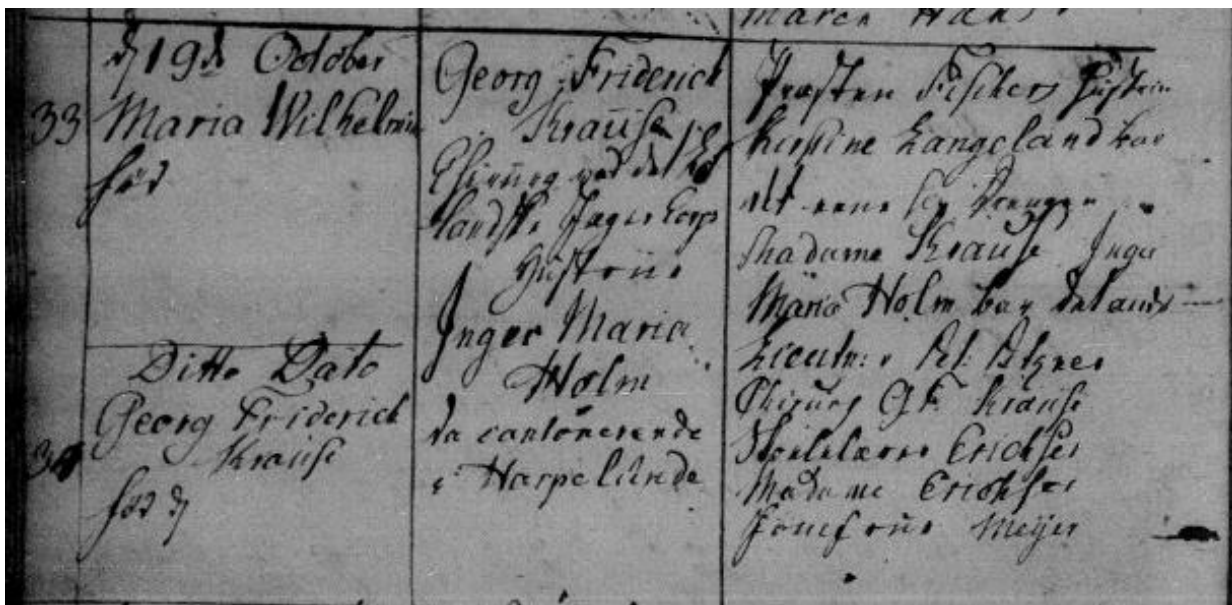 Maren Hans
d 19de October
33 Maria Wilhelmin
fød
Ditto Dato
34 Georg Friderich
Krause
fød d
Georg Friderich
Krause
Chirurg ved det
landske Jæger Corps
Hustrue
Inger Maria
Holm
da cantonerende
i Harpelunde
Præsten Fischers Hustrue
Kirstine Langeland bar
det eene
Madame Krause Inger
Maria Holm bar det andet
Lieutn:
Chirurg G F. Krause
Skolelærer Erichsen
Madame Erichsen
Jomfrue Meyer